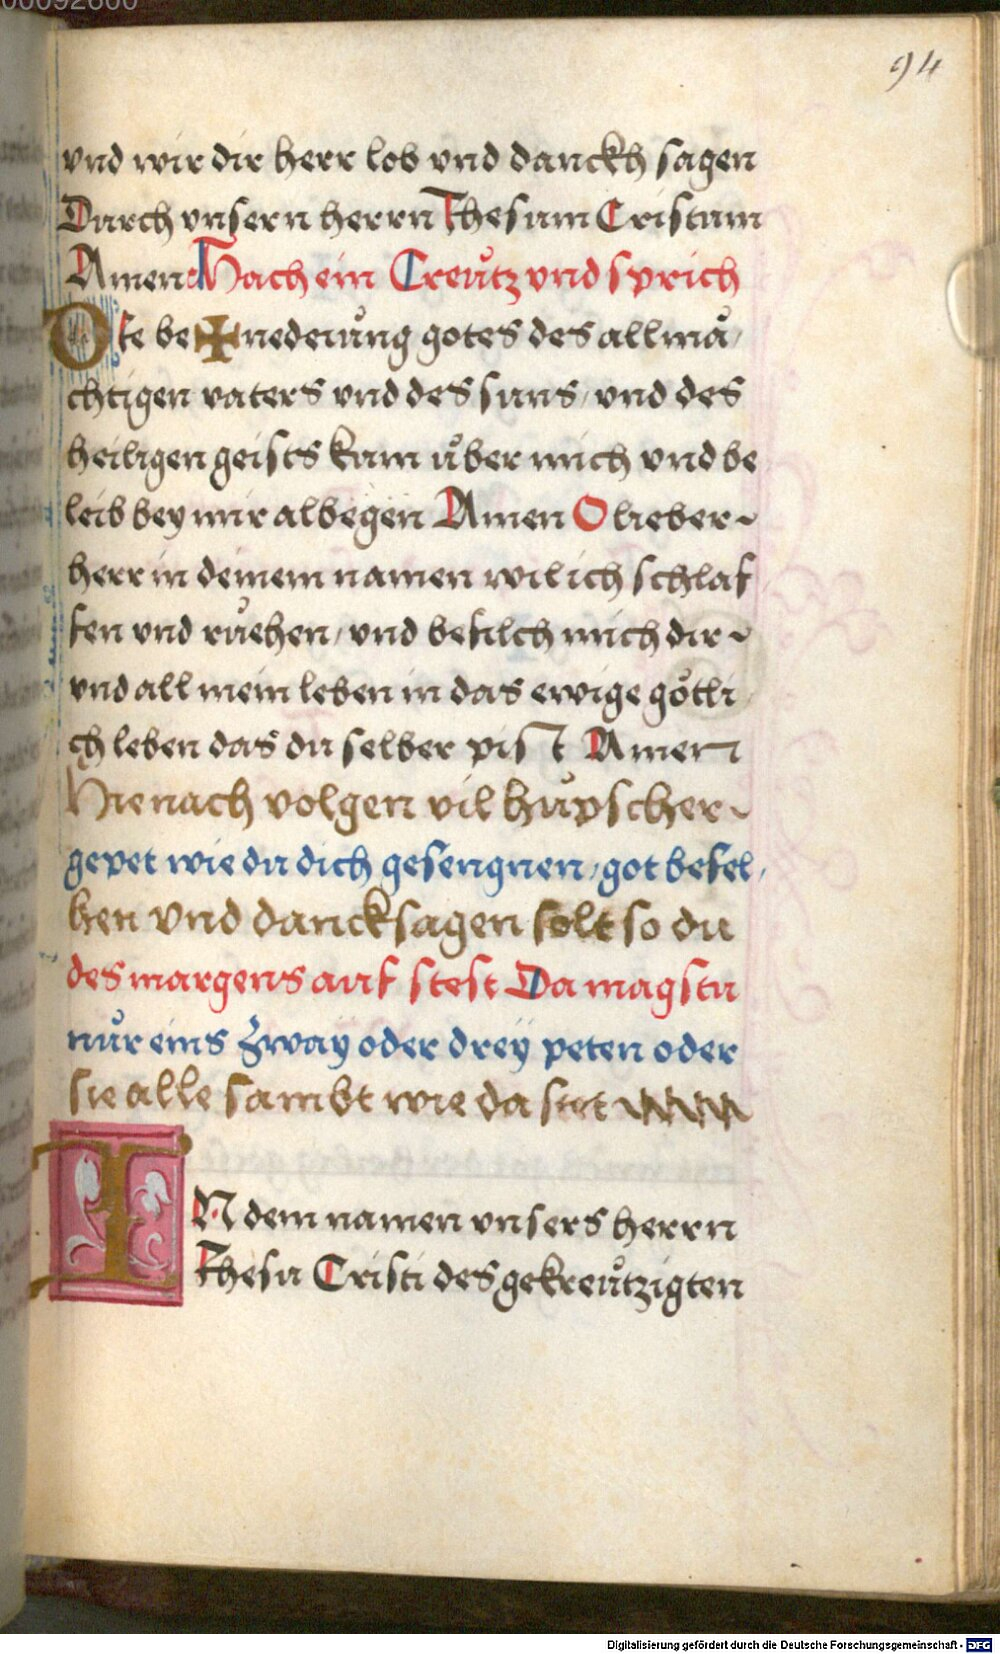 00092600
94
vnd wir dir herr lob vnd danckh sagen
Durch vnsern herrn Ihesum Cristum
Amen Mach ein Creůtz vnd sprich
Die be✠nedeiung gotes des allmå,
chtigen vaters vnd des suns, vnd des
heiligen geists kum über mich vnd be
leib bey mir albegen Amen O lieber~
herr in deinem namen wil ich schlaf
fen vnd růehen, vnd befilch mich dir~
vnd all mein leben in das ewige götli
ch leben das du selber pist Amen
Hienach volgen vil hüpscher~
gepet wie du dich gesengnen, got befel,
hen vnd dancksagen solt so du
des margens auf stest Da magstu
nůr eins zway oder dreÿ peten oder
sie alle sambt wie da stet
IN dem namen vnsers herrn
Ihesu Cristi des gekreůtzigten
Digitalisierung gefördert durch die Deutsche Forschungsgemeinschaft - DFG